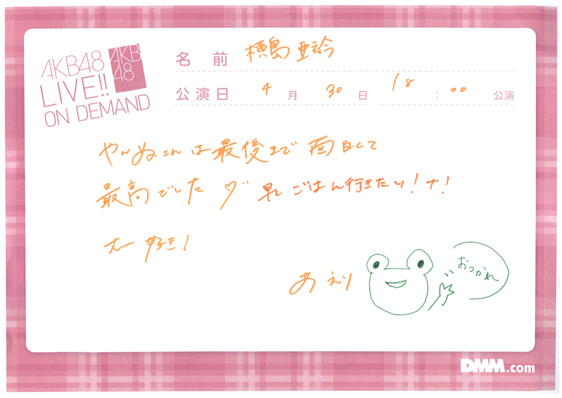 AKB48
LIVE!!
ON DEMAND
AKB
48
名前 横島亜衿
公演日 4月30日 18:00 公演
やんぬさんは最後まで面白くて
最高でした♡ 早くごはん行きたい!ナ!
大好き!
あえり
おつかれ
DMM.com